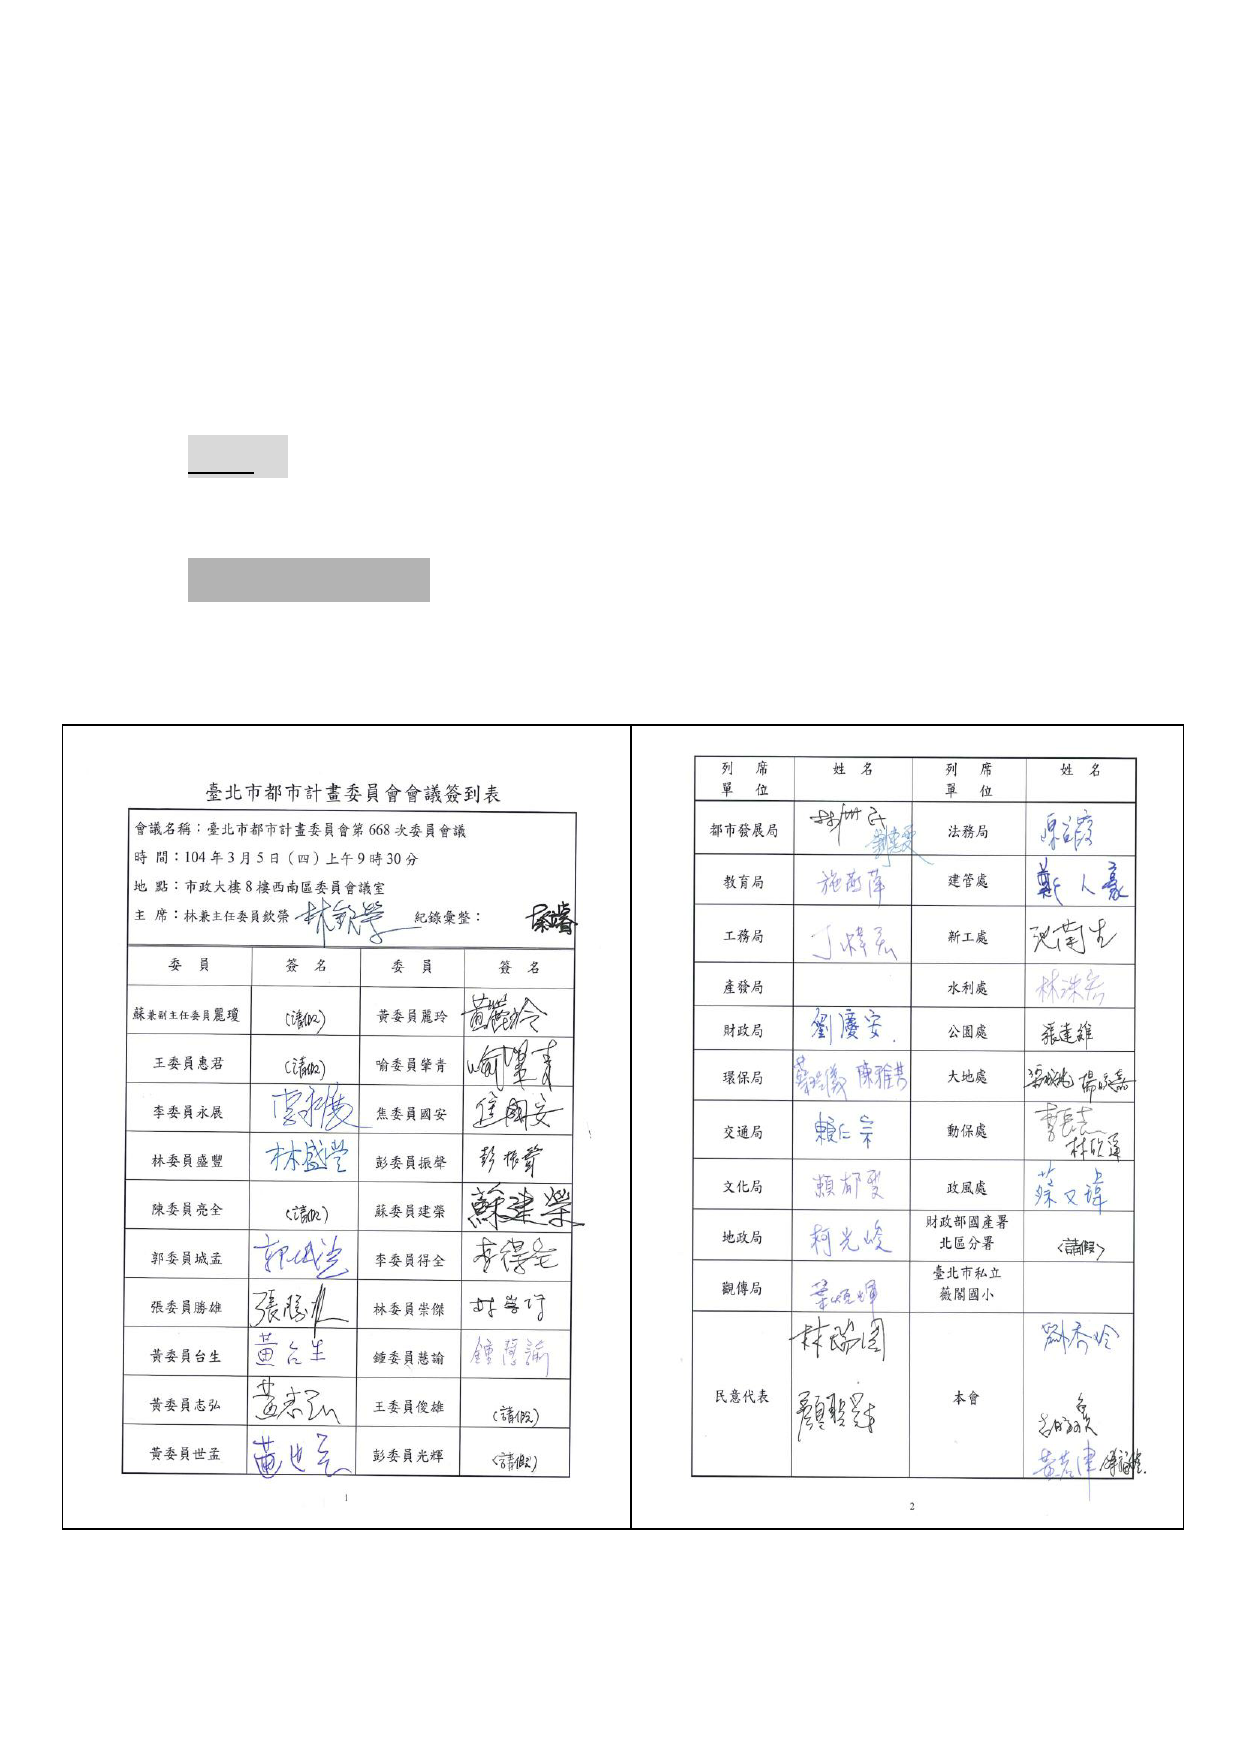 臺北市都市計畫委員會會議簽到表
會議名稱：臺北市都市計畫委員會第 668 次委員會議
時 間：104 年 3 月 5 日（四）上午 9 時 30 分
地 點：市政大樓 8 樓西南區委員會議室
主 席：林兼主任委員欽榮 林欽榮 紀錄彙整：
委 員 簽 名 委 員 簽 名
蘇兼副主任委員麗瓊 (請假) 黃委員麗玲 黃麗玲
王委員惠君 (請假) 喻委員肇青 喻肇青
李委員永展 李永展 焦委員國安 焦國安
林委員盛豐 林盛豐 彭委員振聲 彭振聲
陳委員亮全 (請假) 蘇委員建榮 蘇建榮
郭委員城孟 郭城孟 李委員得全 李得全
張委員勝雄 張勝雄 林委員崇傑
黃委員台生 黃台生 鍾委員慧諭 鍾慧諭
黃委員志弘 黃志弘 王委員俊雄 (請假)
黃委員世孟 黃世孟 彭委員光輝 (請假)
1
列 席 單 位 姓 名 列 席 單 位 姓 名
都市發展局 法務局
教育局 建管處 鄭人豪
工務局 新工處
產發局 水利處
財政局 劉慶安 公園處 張達雄
環保局 陳雅芬 大地處
交通局 賴仁宗 動保處
文化局 賴郁雯 政風處 蔡文瑋
地政局 柯光峻 財政部國產署北區分署 (請假)
觀傳局 臺北市私立薇閣國小
民意代表 林瑞圖 本會 劉秀玲
2